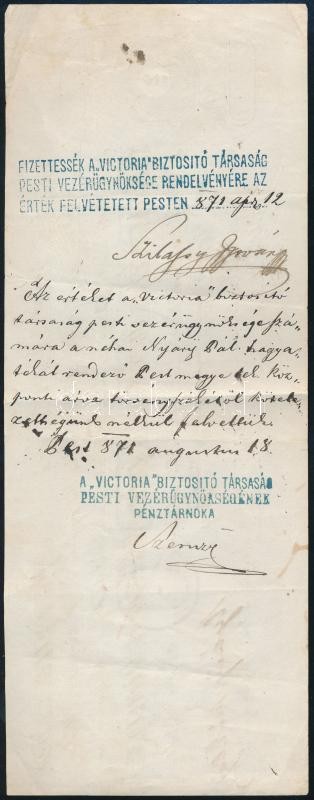 FIZETTESSÉK A „VICTORIA" BIZTOSITÓ TÁRSASÁG
PESTI VEZÉRÜGYNÖKSÉGE RENDELVÉNYÉRE AZ
ÉRTÉK FELVÉTETETT PESTEN 871 apr. 12
Szilassy István
Az értéket a „Victoria" biztositó
társaság pesti vezérügynöksége szá-
mára a néhai Nyáry Pál hagya-
tékát rendező Pest megye tek. köz-
ponti árva törvényszékétől kötele-
zettségünk nélkül felvettük.
Pest 871 augustus 18.
A „VICTORIA" BIZTOSITÓ TÁRSASÁG
PESTI VEZÉRÜGYNÖKSÉGÉNEK
PÉNZTÁRNOKA